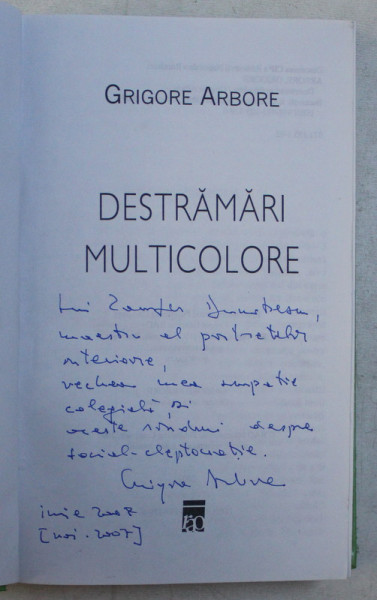 GRIGORE ARBORE
DESTRĂMĂRI
MULTICOLORE
Lui Zamfir Dumitrescu,
maestru al portretelor
interioare,
vechea mea simpatie
colegială și
aceste rânduri despre
social-cleptocrație.
Grigore Arbore
iunie 2007
[noi. 2007]
rao